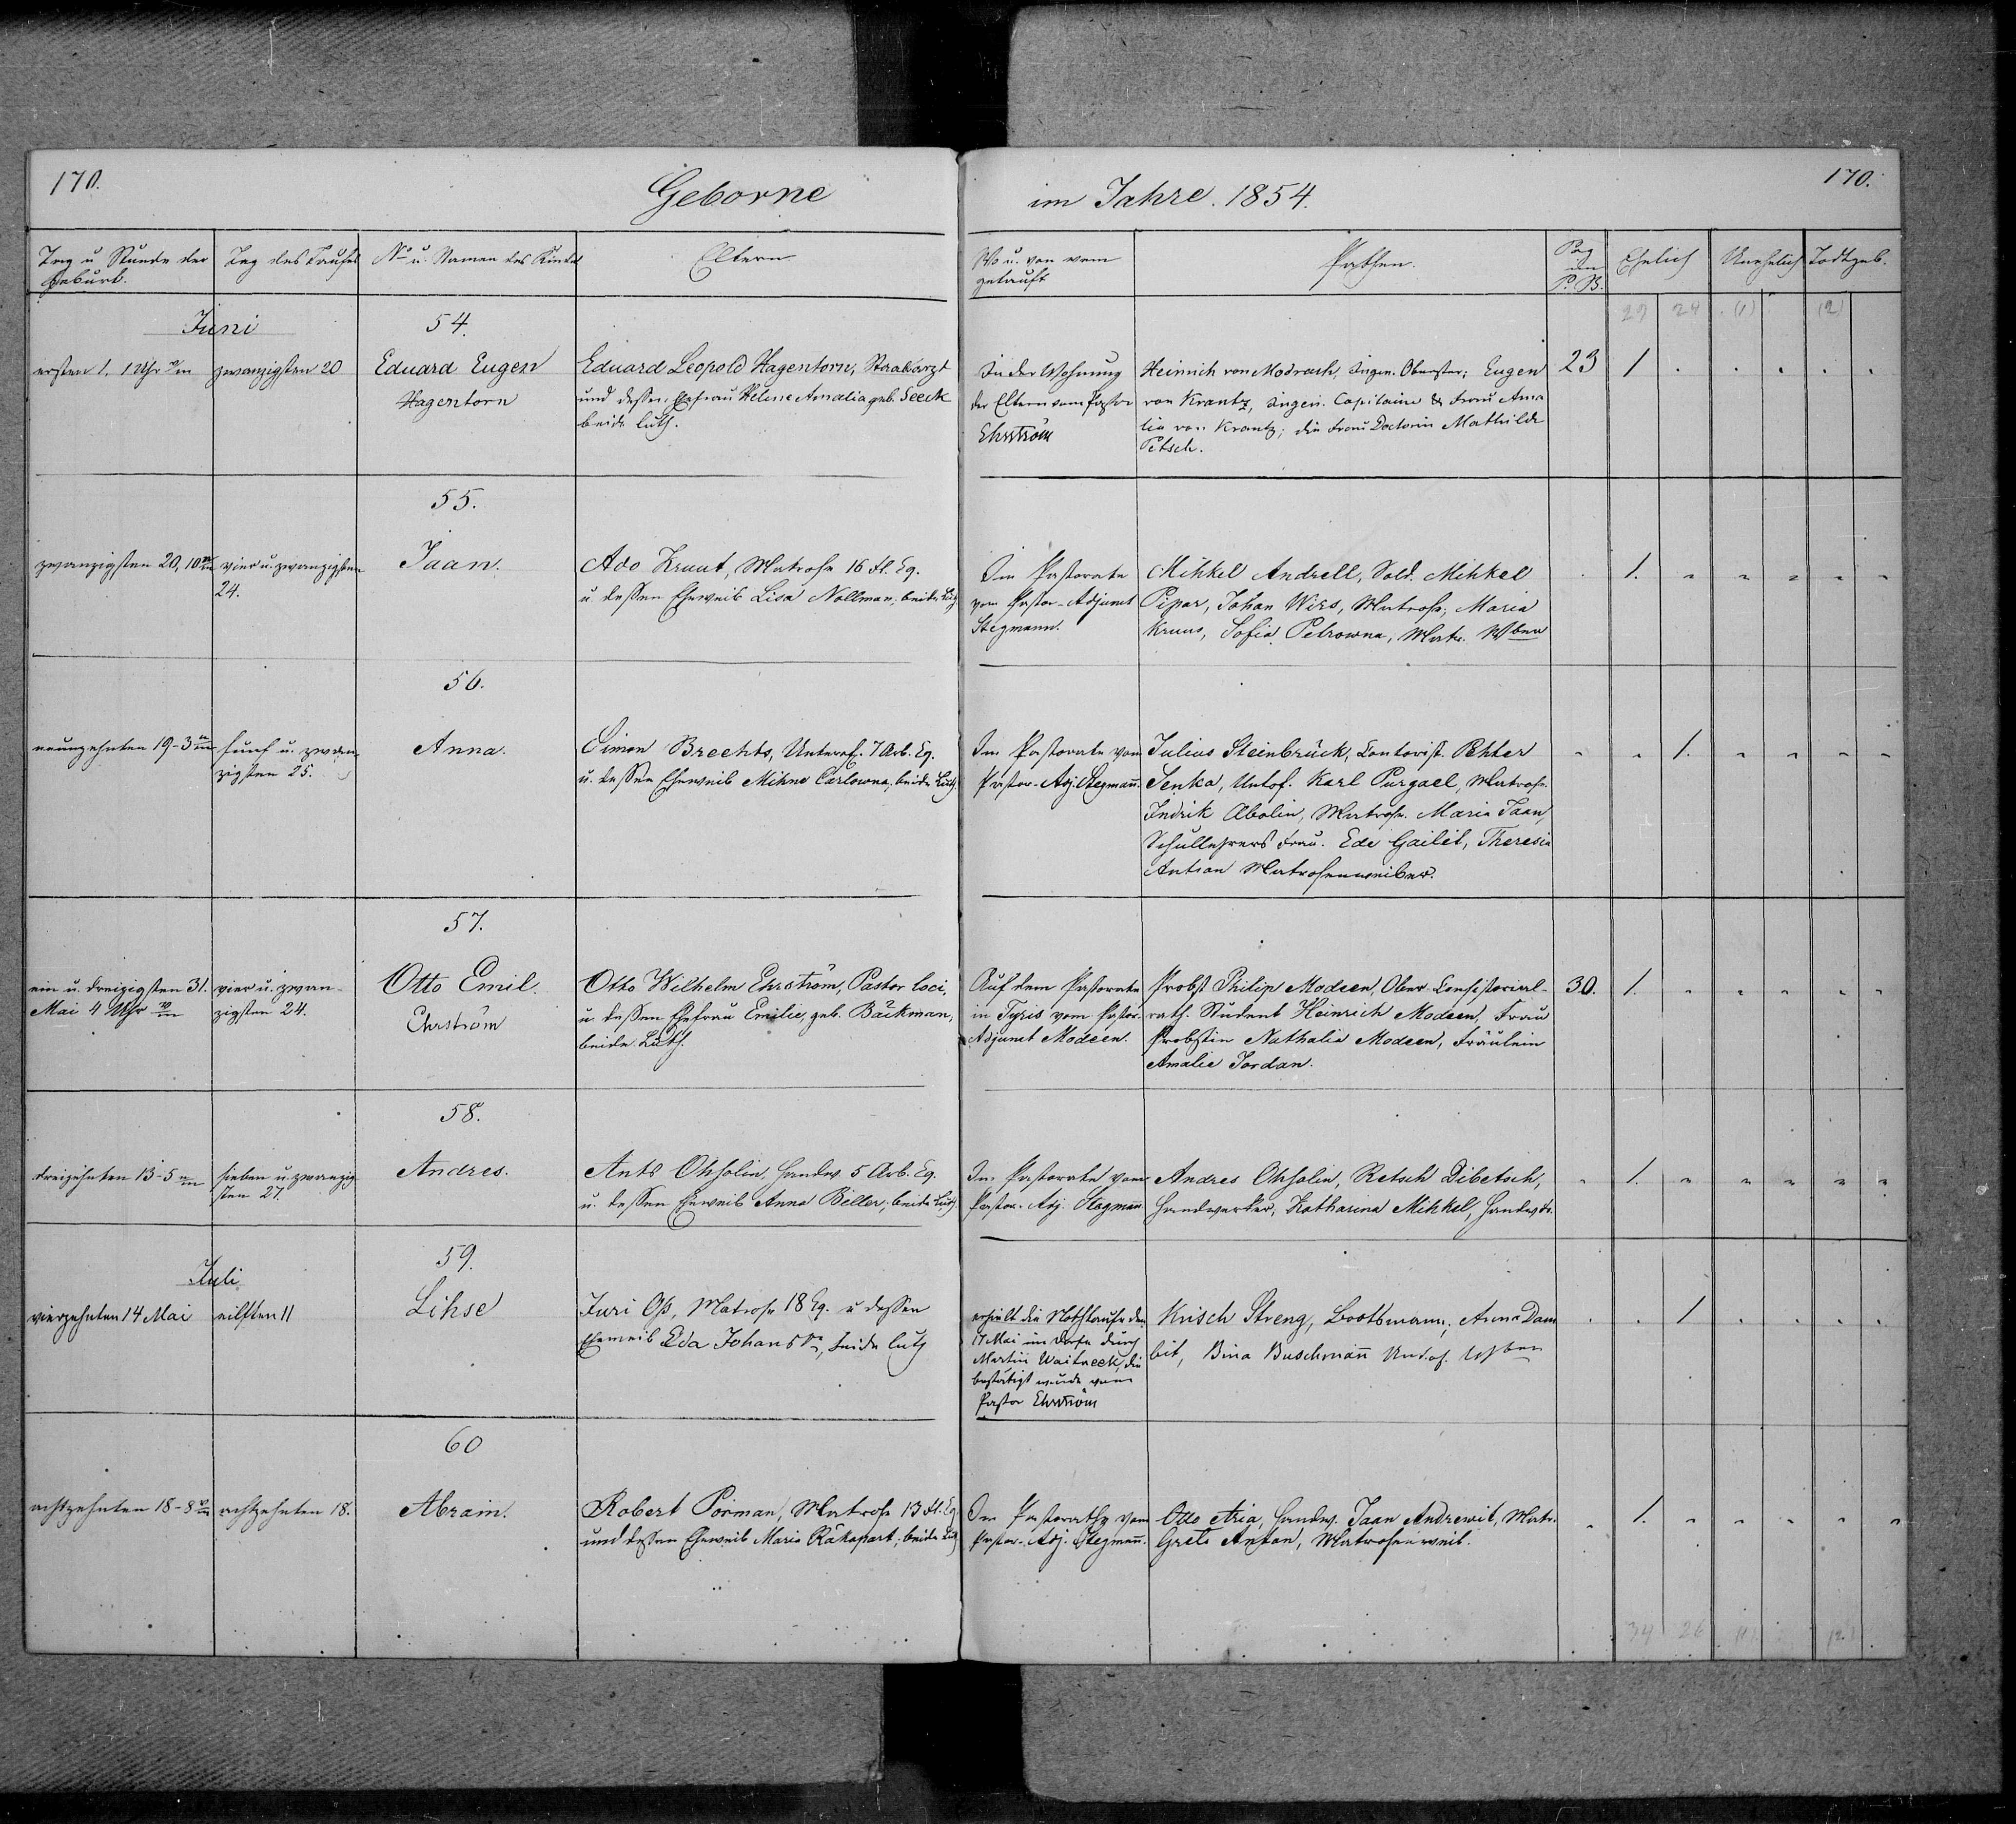 170.
Geborne
im Jahre. 1854.
170.
Tag u Stunde der Geburt.
Tag des Taufes
No u. Namen des Kindes
Eltern
Wo u. von wem getauft
Pathen.
Pag im P. B.
Ehelich
Unehelich
Todtgeb.
29 24 (1) (2)
Juni
54.
ersten 1. 1 Uhr
zwanzigsten 20
Eduard Eugen
Hagentorn
Eduard Leopold Hagentorn, Staabsarzt
und dessen Ehefrau Helene Amalia geb. Seeck
beide luth.
In der Wohnung
der Eltern vom Pastor
Ehrström
Heinrich von Modrach, Ingen. Oberster; Eugen
von Krantz, Ingen. Capitaine & Frau Ama
lia von Krantz; die Frau Doctorin Mathilde
Petsch.
23
1
55.
zwanzigsten 20, 10
vier u. zwanzigsten
24.
Jaan.
Ado Kruut, Matrose 16 Fl. Eq.
u. dessen Eheweib Lisa Nollman, beide Luth
Im Pastorate
vom Pastor-Adjunct
Stegmann.
Mihkel Andrell, Sold. Mihkel
Pipar, Johan Wirs, Matrose, Maria
Kruus, Sofia Petrowna, Matr. Wber
1.
56.
neunzehnten 19-3
fünf u. zwan
zigsten 25.
Anna.
Simon Brechts, Unterof. 7 Arb. Eq.
u. dessen Eheweib Mihne Carlowna, beide Luth.
Im Pastorate vom
Pastor-Adj. Stegmañ.
Julius Steinbrück, Contorist. Pehter
Jenka, Untof. Karl Purgael, Matrose.
Indrik Abolin, Matrose. Maria Jaan,
Schullehrers Frau. Ede Gailit, Theresia
Antson Matrosenweiber.
1.
57.
ein u. dreizigsten 31.
Mai 4 Uhr
vier u. zwan-
zigsten 24.
Otto Emil.
Ehrström
Otto Wilhelm Ehrström, Pastor loci,
u. dessen Ehefrau Emilie, geb. Bäckman,
beide Luth.
Auf dem Pastorate
in Tyris vom Pastor-
Adjunct Modeen.
Probst Philip Modeen, Ober-Consistorial-
rath. Student Heinrich Modeen, Frau
Probstin Nathalie Modeen, Fräulein
Amalie Jordan.
30.
1.
58.
dreizehnten 13-5
sieben u. zwanzig
sten 27.
Andres.
Ants Ohsolin, Handw. 5 Arb. Eq.
u. dessen Eheweib Anna Beller, beide Luth.
Im Pastorate vom
Pastor-Adj. Stegmañ
Andres Ohsolin, Retsch Dibetsch,
Handwerker, Katharina Mihkel,
1.
Juli
59.
vierzehnten 14 Mai
eilften 11
Lihse
Juri Oss, Matrose 18 Eq. u dessen
Eheweib Eda Johans, beide luth
erhielt die Nothtaufe den
17 Mai im Dorfe durch
Martin Waitneek, die
bestätigt wurde vom
Pastor Ehrström
Krisch Streng, Bootsmann; Anna Dam
bit, Bina Buschmañ Undof. Wber
1
60
achtzehnten 18-8
achtzehnten 18.
Abram.
Robert Porman, Matrose 13 Fl. Eq.
und dessen Eheweib Maria Räkapart, beide Luth
Im Pastorathe vom
Pastor-Adj. Stegmañ.
Otto Aria, Handw. Jaan Andrewit, Matr.
Greta Antson, Matrosenweib.
1.
34 26 (1) (2)